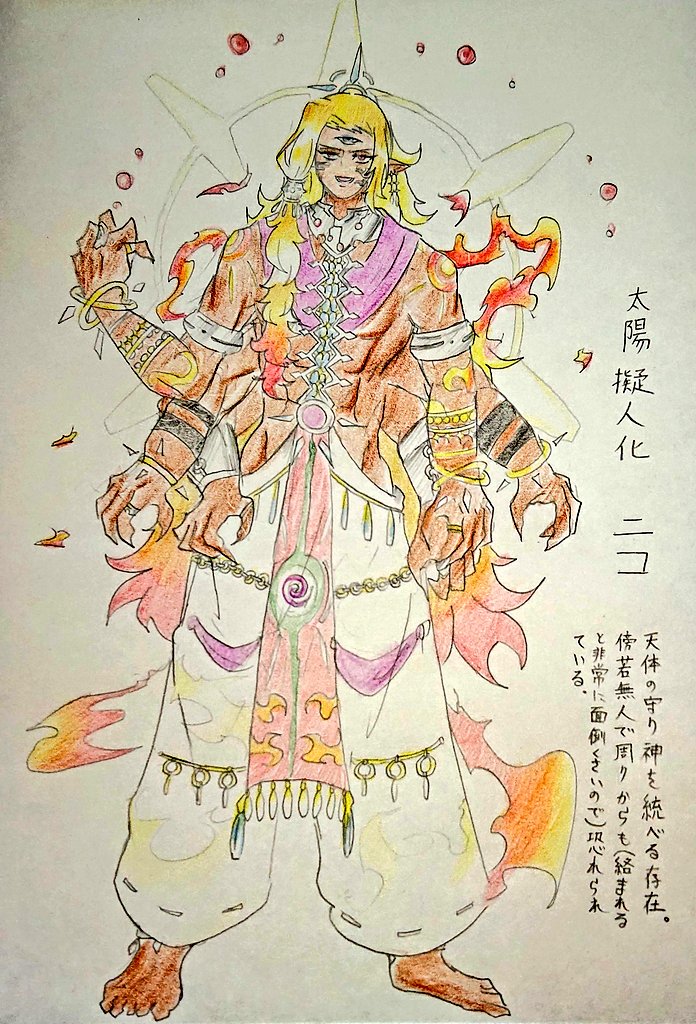 太陽擬人化 ニコ
天体の守り神を統べる存在。
傍若無人で周りからも(絡まれる
と非常に面倒くさいので)恐れられ
ている。